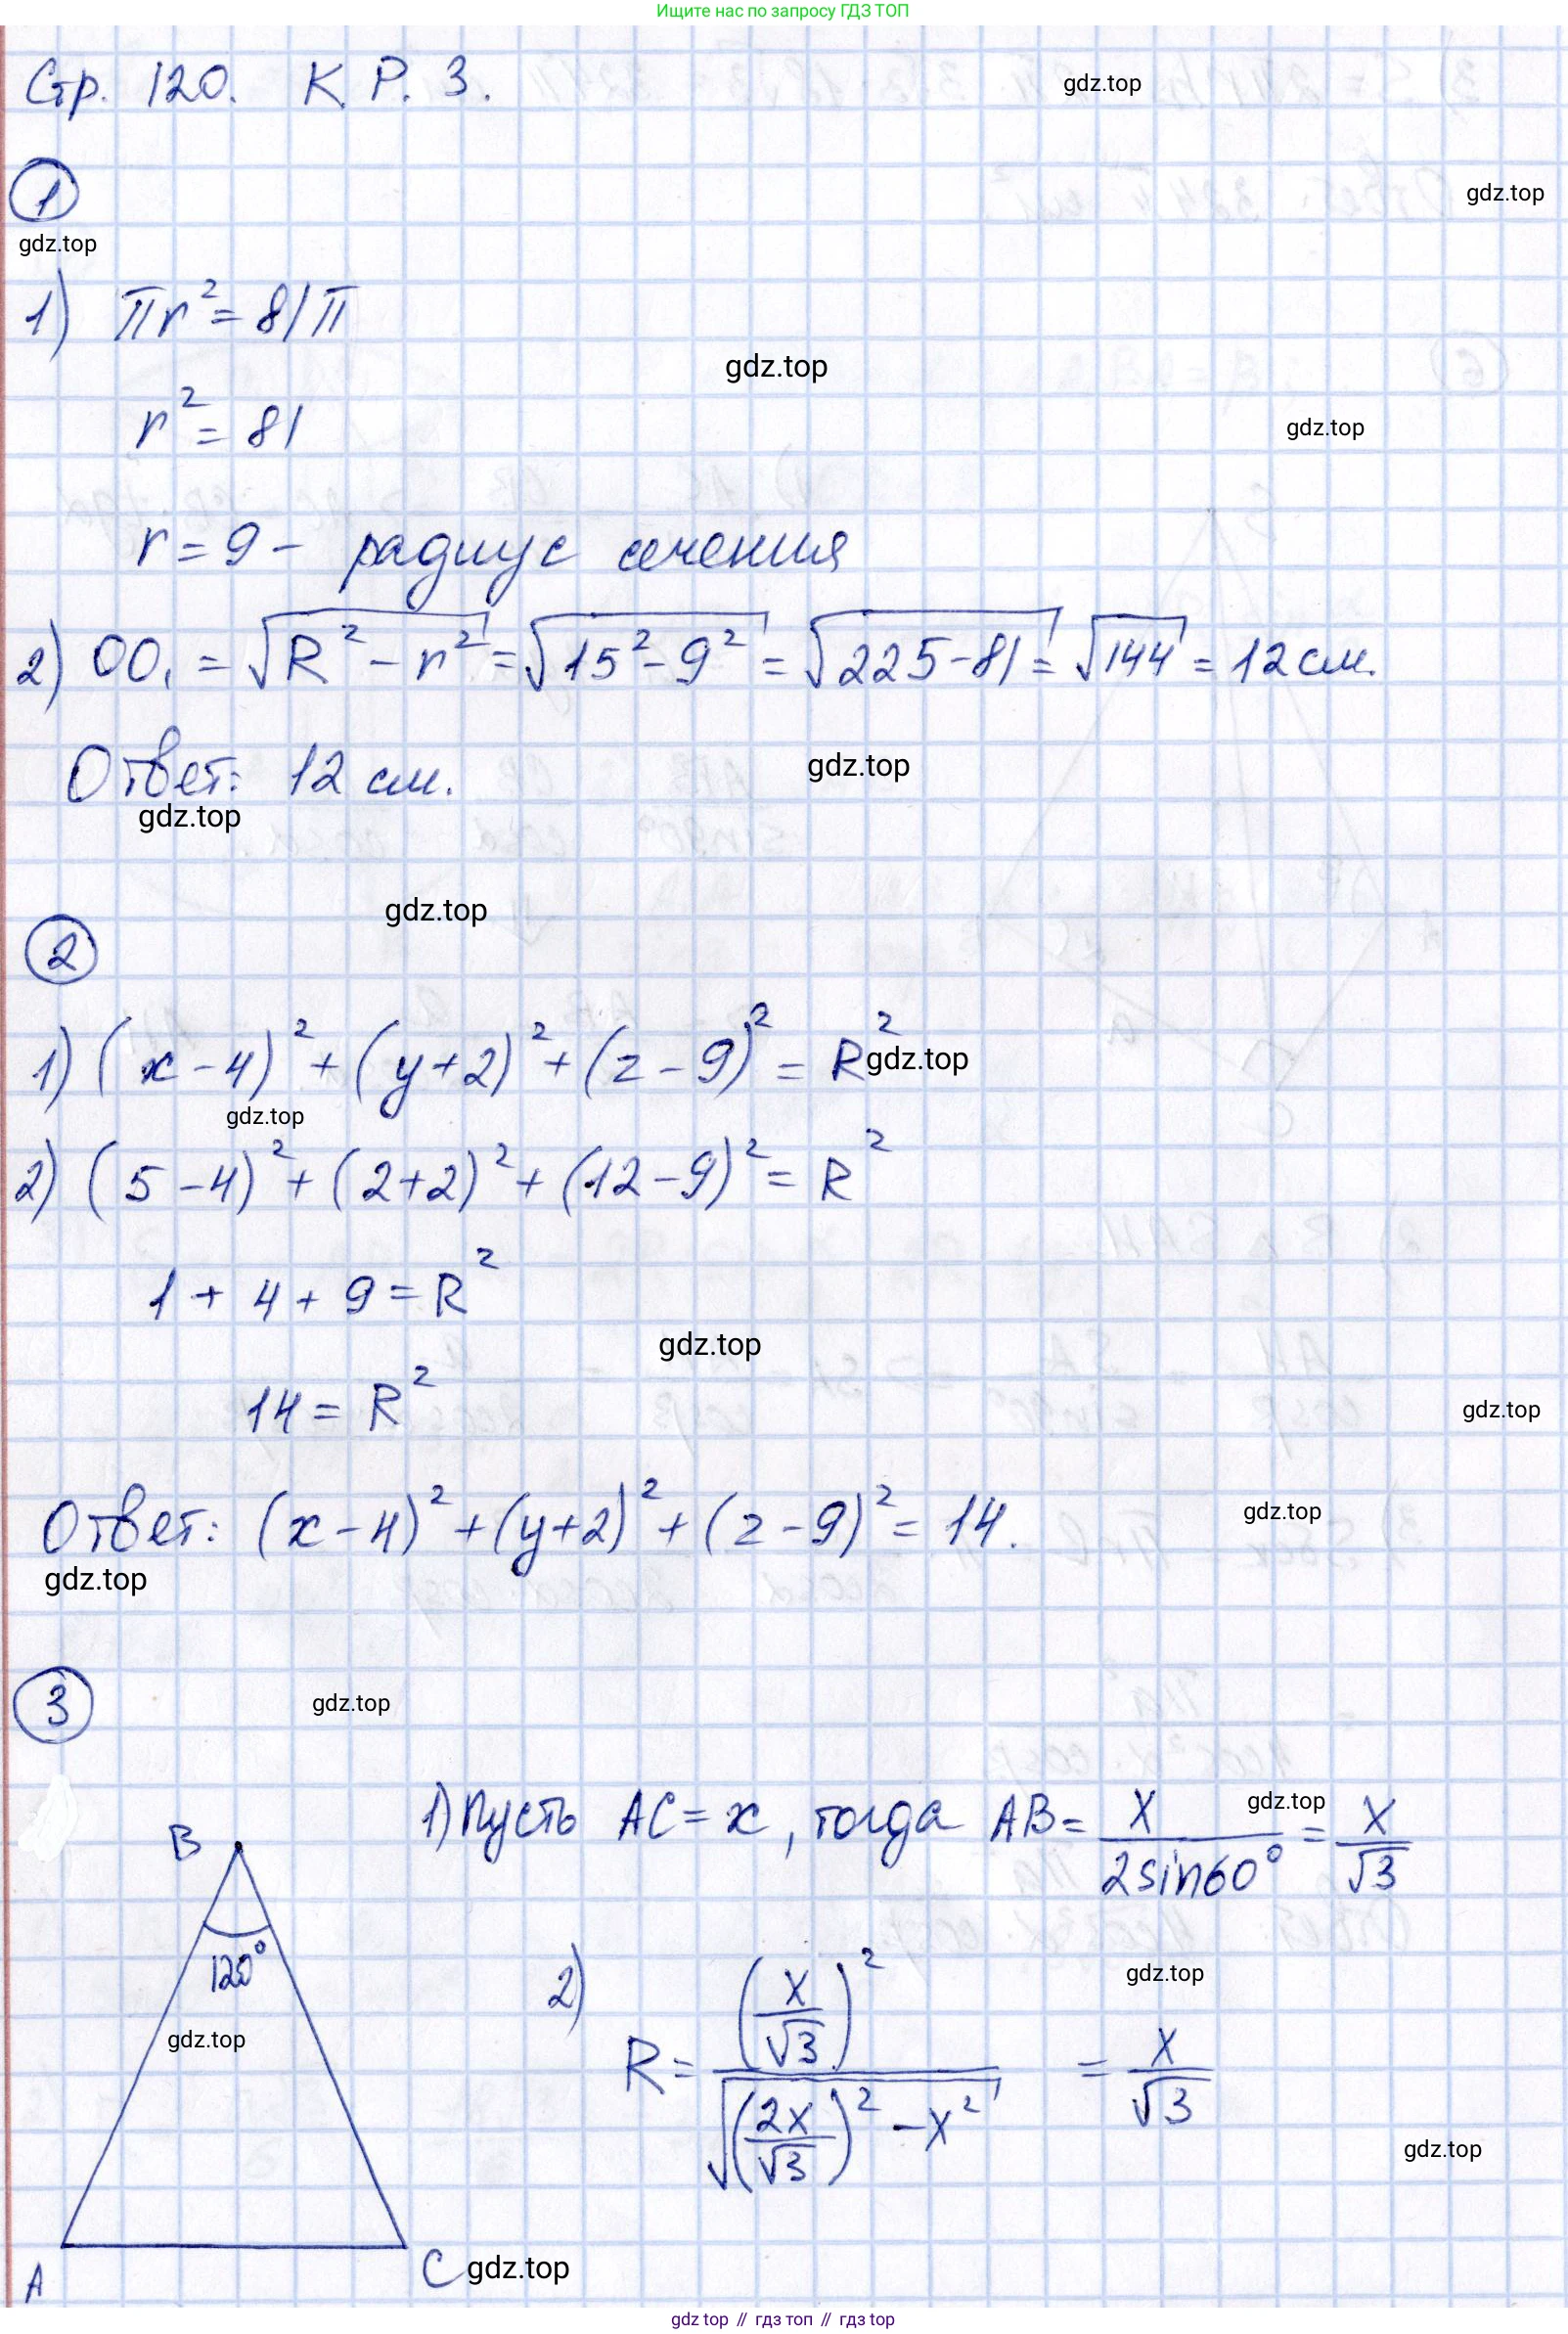 Ищите нас по запросу ГДЗ ТОП
Стр. 120. К. Р. 3.
gdz.top
1
gdz.top
gdz.top
1) πr² = 81π
gdz.top
r² = 81
gdz.top
r = 9 - радиус сечения
2) OO₁ = √(R² - r²) = √(15² - 9²) = √(225 - 81) = √144 = 12 см.
Ответ: 12 см.
gdz.top
gdz.top
gdz.top
2
1) (x - 4)² + (y + 2)² + (z - 9)² = R²
gdz.top
gdz.top
2) (5 - 4)² + (2 + 2)² + (12 - 9)² = R²
1 + 4 + 9 = R²
gdz.top
14 = R²
gdz.top
Ответ: (x - 4)² + (y + 2)² + (z - 9)² = 14.
gdz.top
gdz.top
3
gdz.top
1) Пусть AC = x, тогда AB = x/(2sin60°) = x/√3
gdz.top
B
120°
gdz.top
2) R = (x/√3)² / √((2x/√3)² - x²) = x/√3
gdz.top
gdz.top
A
C
gdz.top
gdz top // гдз топ // гдз top